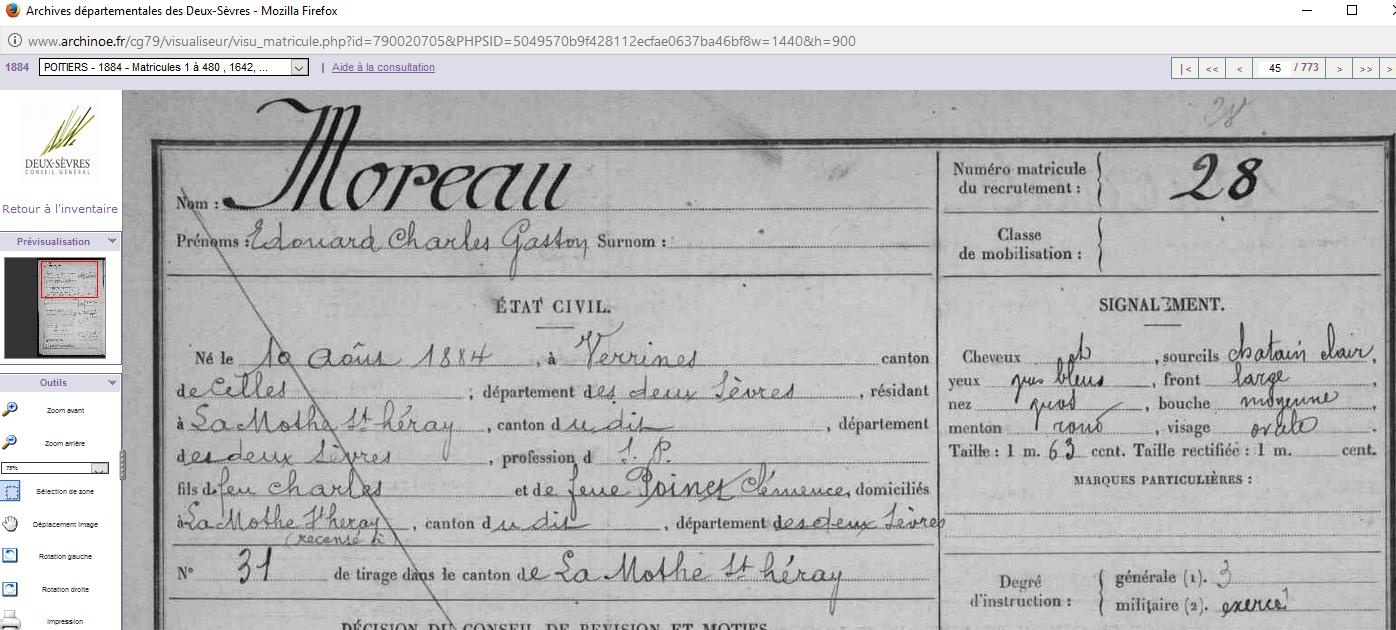 Archives départementales des Deux-Sèvres - Mozilla Firefox
www.archinoe.fr/cg79/visualiseur/visu_matricule.php?id=790020705&PHPSID=5049570b9f428112ecfae0637ba46bf8w=1440&h=900
1884 POITIERS - 1884 - Matricules 1 à 480 , 1642, ... | Aide à la consultation |< << < 45 / 773 > >> >
DEUX-SÈVRES
CONSEIL GÉNÉRAL
Retour à l'inventaire
Prévisualisation
Outils
Zoom avant
Zoom arrière
75%
Sélection de zone
Déplacement image
Rotation gauche
Rotation droite
Impression
Nom : Moreau
Prénoms : Edouard Charles Gaston Surnom :
ÉTAT CIVIL.
Né le 10 Août 1884, à Verrines canton
de Celles ; département des deux Sèvres, résidant
à La Mothe St héray, canton du dit, département
des deux Sèvres, profession d S. P.
fils de feu Charles et de feue Poinet Clémence, domiciliés
à La Mothe St heray, canton du dit, département des deux Sèvres
(recensé à
N° 31 de tirage dans le canton de La Mothe St héray
DÉCISION DU CONSEIL DE REVISION ET MOTIFS
Numéro matricule
du recrutement : 28
Classe
de mobilisation :
SIGNALEMENT.
Cheveux , sourcils chatain clair,
yeux gris bleus, front large
nez gros, bouche moyenne,
menton rond, visage ovale.
Taille : 1 m. 63 cent. Taille rectifiée : 1 m. cent.
MARQUES PARTICULIÈRES :
Degré
d'instruction :
générale (1). 3
militaire (2). exercé